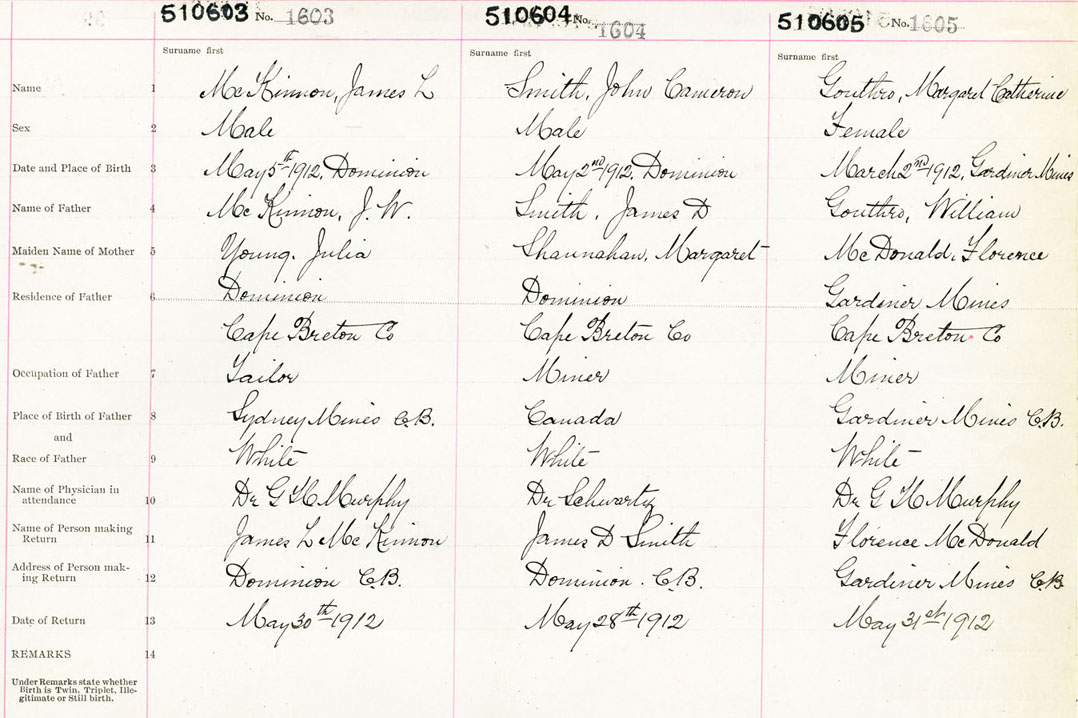 510603 No. 1603 510604 No. 1604 510605 No. 1605
Surname first Surname first Surname first
Name 1 McKinnon, James L Smith, John Cameron Gouthro, Margaret Catherine
Sex 2 Male Male Female
Date and Place of Birth 3 May 5th 1912, Dominion May 2nd 1912, Dominion March 2nd 1912, Gardiner Mines
Name of Father 4 McKinnon, J. W. Smith, James D Gouthro, William
Maiden Name of Mother 5 Young, Julia Shaunahan, Margaret McDonald, Florence
Residence of Father 6 Dominion Dominion Gardiner Mines
Cape Breton Co Cape Breton Co Cape Breton Co
Occupation of Father 7 Tailor Miner Miner
Place of Birth of Father 8 Sydney Mines C.B. Canada Gardiner Mines C.B.
and
Race of Father 9 White White White
Name of Physician in
attendance 10 Dr G H Murphy Dr Schwartz Dr G H Murphy
Name of Person making
Return 11 James L McKinnon James D Smith Florence McDonald
Address of Person mak-
ing Return 12 Dominion C.B. Dominion. C.B. Gardiner Mines C.B.
Date of Return 13 May 30th 1912 May 28th 1912 May 31st 1912
REMARKS 14
Under Remarks state whether
Birth is Twin, Triplet, Ille-
gitimate or Still birth.